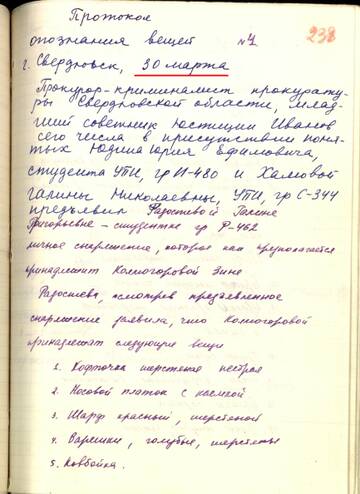 Протокол
опознания вещей №1
238
г. Свердловск, 30 марта
Прокурор-криминалист прокурату-
ры Свердловской области, млад-
ший советник юстиции Иванов
сего числа в присутствии поня-
тых Юдина Юрия Ефимовича,
студента УПИ, гр И-480 и
Галины Николаевны, УПИ, гр С-344
предъявил Радостевой Галине
Григорьевне - студентке гр Р-462
личное снаряжение, которое как предполагается
принадлежит Колмогоровой Зине
Радостева, осмотрев предъявленное
снаряжение заявила, что Колмогоровой
принадлежат следующие вещи
1. Кофточка шерстяная пестрая
2. Носовой платок с каемкой
3. Шарф красный, шерстяной
4. Варежки, голубые, шерстяные
5. Ковбойка.